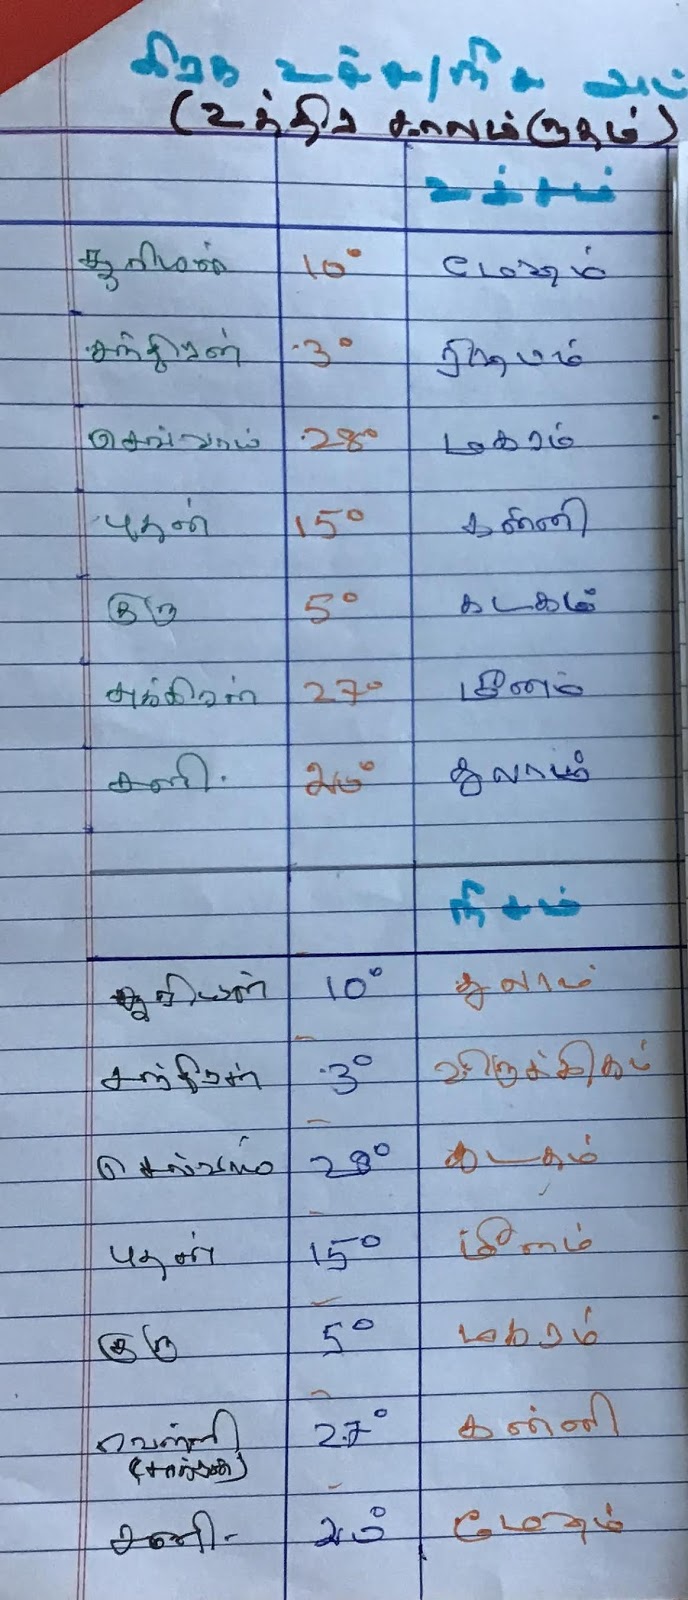 கிரக உச்ச/நீச
(உத்திர காலாம்ருதம்)
உச்சம்
சூரியன் 10° மேஷம்
சந்திரன் 3° ரிஷபம்
செவ்வாய் 28° மகரம்
புதன் 15° கன்னி
குரு 5° கடகம்
சுக்கிரன் 27° மீனம்
சனி. துலாம்
நீசம்
சூரியன் 10° துலாம்
சந்திரன் 3° விருச்சிகம்
செவ்வாய் 28° கடகம்
புதன் 15° மீனம்
குரு 5° மகரம்
வெள்ளி 27° கன்னி
சனி. மேஷம்